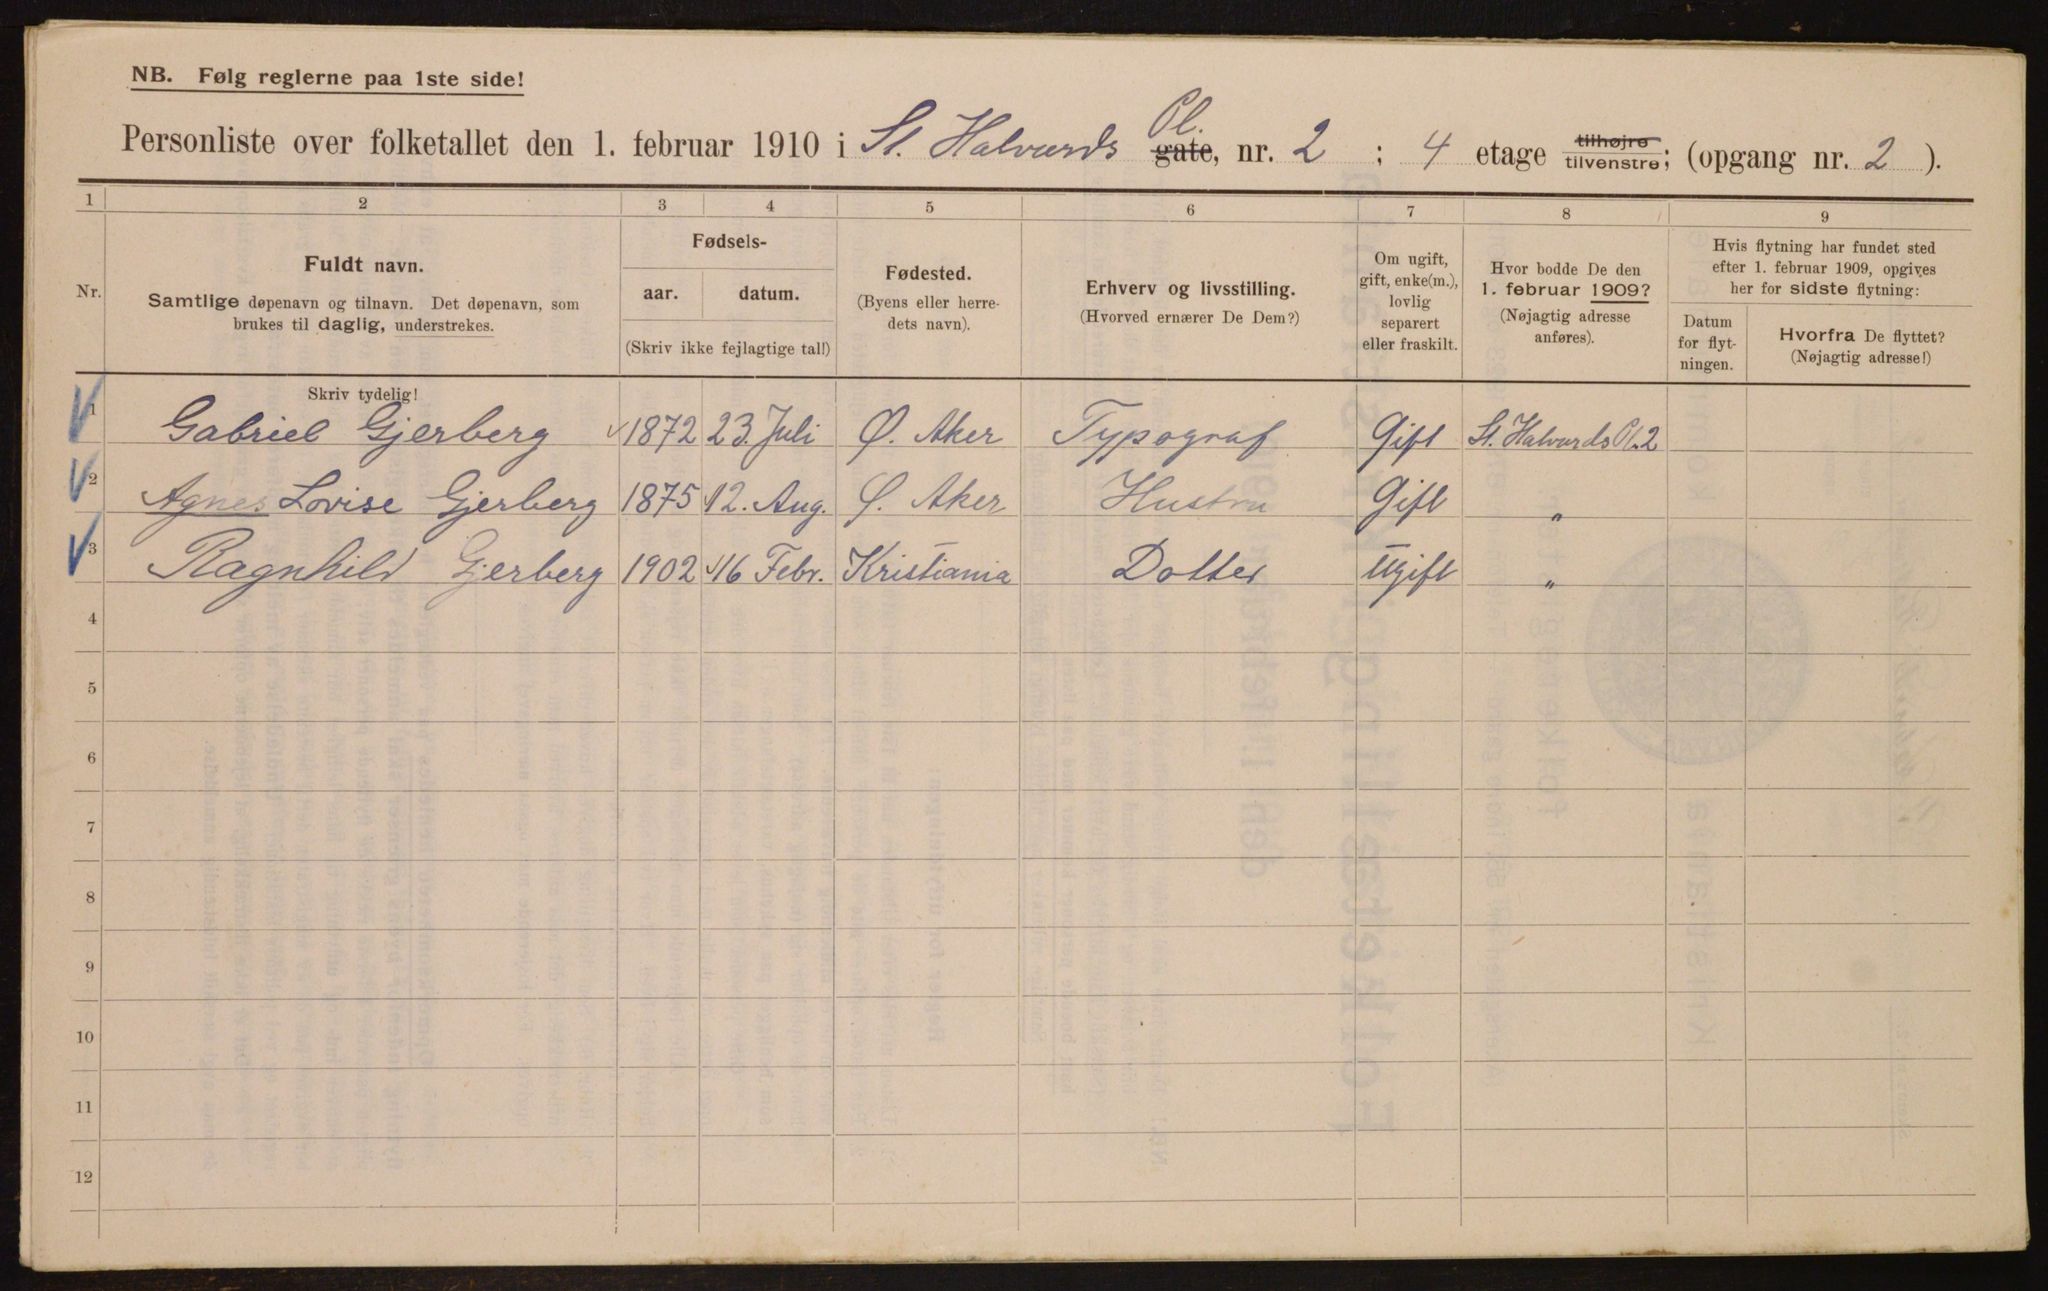 NB. Følg reglerne paa 1ste side!
Personliste over folketallet den 1. februar 1910 i St. Halvards Pl. gate, nr. 2 ; 4 etage tilhøjre tilvenstre; (opgang nr. 2 ).
1 2 3 4 5 6 7 8 9
Nr.
Fuldt navn.
Samtlige døpenavn og tilnavn. Det døpenavn, som
brukes til daglig, understrekes.
Fødsels-
aar. datum.
(Skriv ikke fejlagtige tal!)
Fødested.
(Byens eller herre-
dets navn).
Erhverv og livsstilling.
(Hvorved ernærer De Dem?)
Om ugift,
gift, enke(m.),
lovlig
separert
eller fraskilt.
Hvor bodde De den
1. februar 1909?
(Nøjagtig adresse
anføres).
Hvis flytning har fundet sted
efter 1. februar 1909, opgives
her for sidste flytning:
Datum
for flyt-
ningen.
Hvorfra De flyttet?
(Nøjagtig adresse!)
Skriv tydelig!
1 Gabriel Gjerberg 1872 23. Juli Ø. Aker Typograf Gift St. Halvards Pl. 2
2 Agnes Lovise Gjerberg 1875 12. Aug. Ø. Aker Hustru Gift „
3 Ragnhild Gjerberg 1902 16 Febr. Kristiania Datter Ugift „
4
5
6
7
8
9
10
11
12